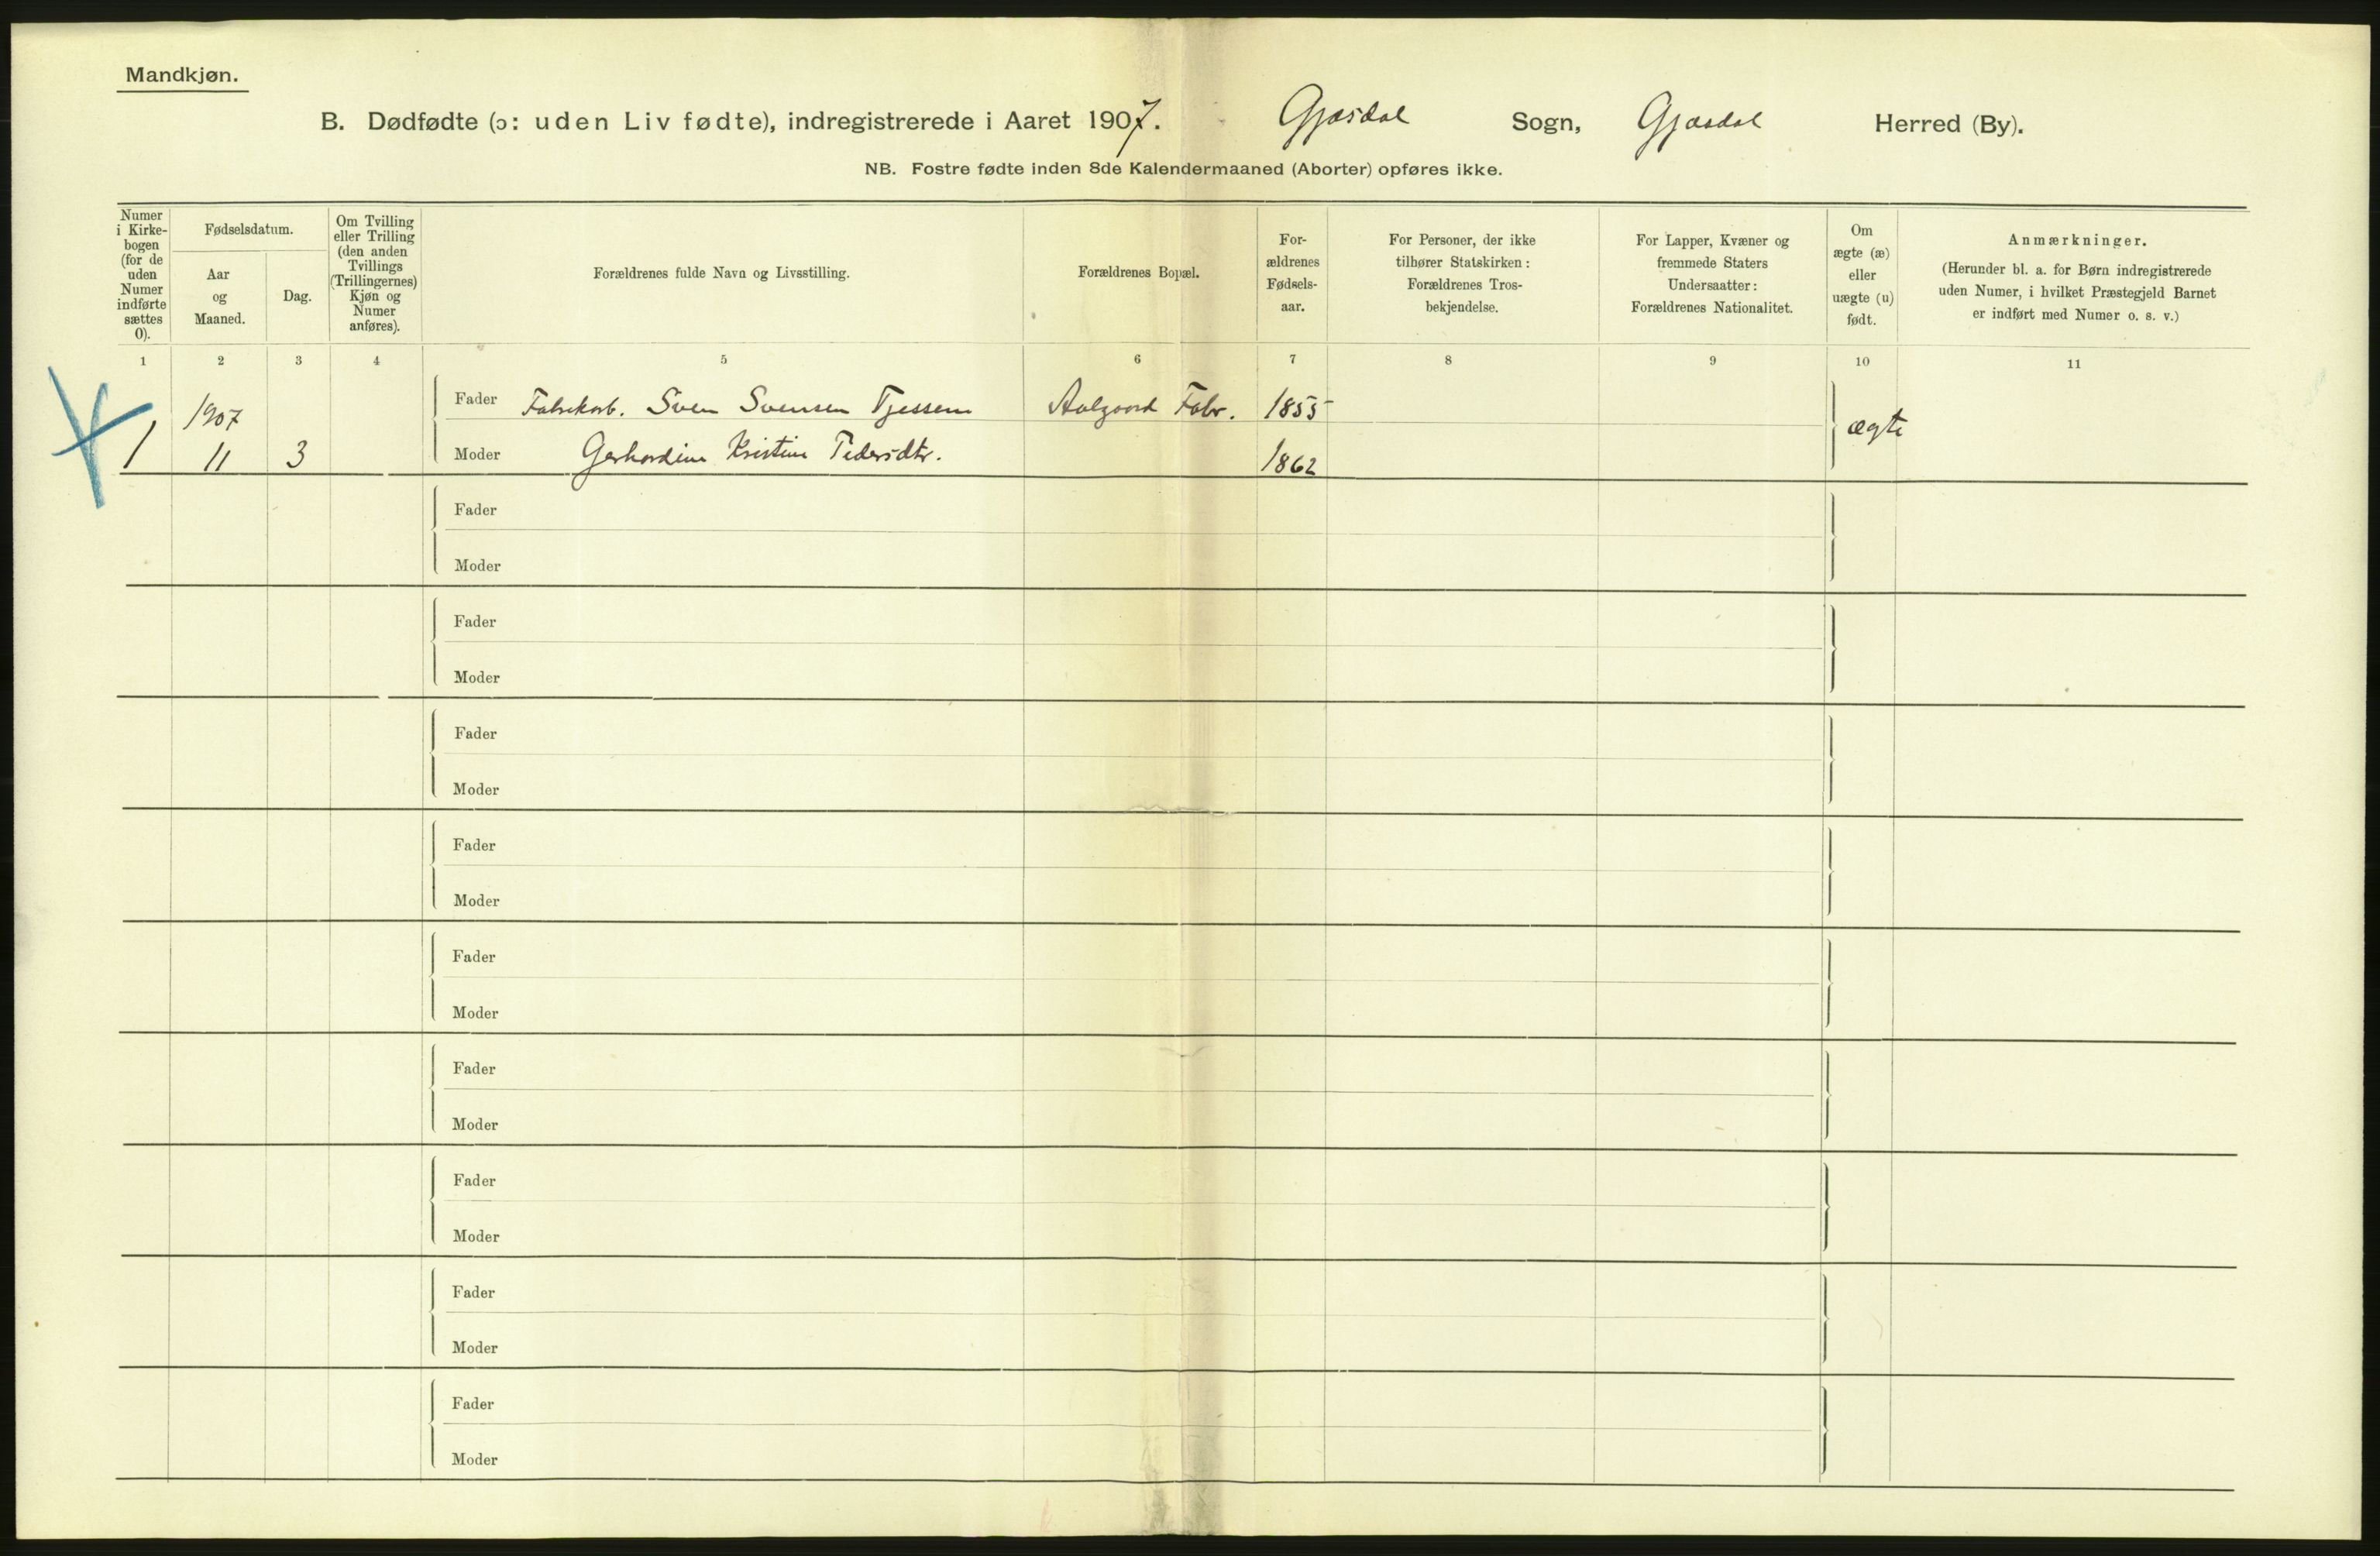 Mandkjøn.
B. Dødfødte (ɔ: uden Liv fødte), indregistrerede i Aaret 1907. Gjæsdal Sogn, Gjæsdal Herred (By).
NB. Fostre fødte inden 8de Kalendermaaned (Aborter) opføres ikke.
Numer
i Kirke-
bogen
(for de
uden
Numer
indførte
sættes
0).
Fødselsdatum.
Aar
og
Maaned.
Dag.
Om Tvilling
eller Trilling
(den anden
Tvillings
(Trillingernes)
Kjøn og
Numer
anføres).
Forældrenes fulde Navn og Livsstilling.
Forældrenes Bopæl.
For-
ældrenes
Fødsels-
aar.
For Personer, der ikke
tilhører Statskirken:
Forældrenes Tros-
bekjendelse.
For Lapper, Kvæner og
fremmede Staters
Undersaatter:
Forældrenes Nationalitet.
Om
ægte (æ)
eller
uægte (u)
født.
Anmærkninger.
(Herunder bl. a. for Børn indregistrerede
uden Numer, i hvilket Præstegjeld Barnet
er indført med Numer o. s. v.)
1 2 3 4 5 6 7 8 9 10 11
1907
Fader Fabrikarb. Sven Svensen Tjessem Aalgaard Fabr. 1855
ægte
1 11 3 Moder Gerhardine Kristine Pedersdtr. 1862
Fader
Moder
Fader
Moder
Fader
Moder
Fader
Moder
Fader
Moder
Fader
Moder
Fader
Moder
Fader
Moder
Fader
Moder